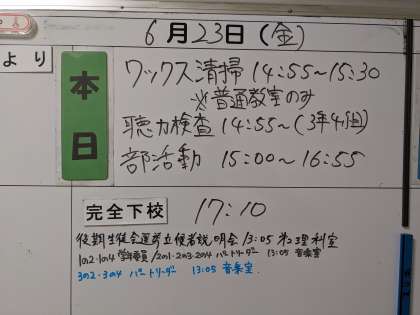 6月23日(金)
より
本日
ワックス清掃 14:55~15:30
※普通教室のみ
聴力検査 14:55~(3年4組)
部活動 15:00~16:55
完全下校 17:10
後期生徒会選挙立候補者説明会 13:05 第2理科室
1の2・1の4 学年委員/2の1・2の3・2の4 パートリーダー 13:05 音楽室
3の2・3の4 パートリーダー 13:05 音楽室